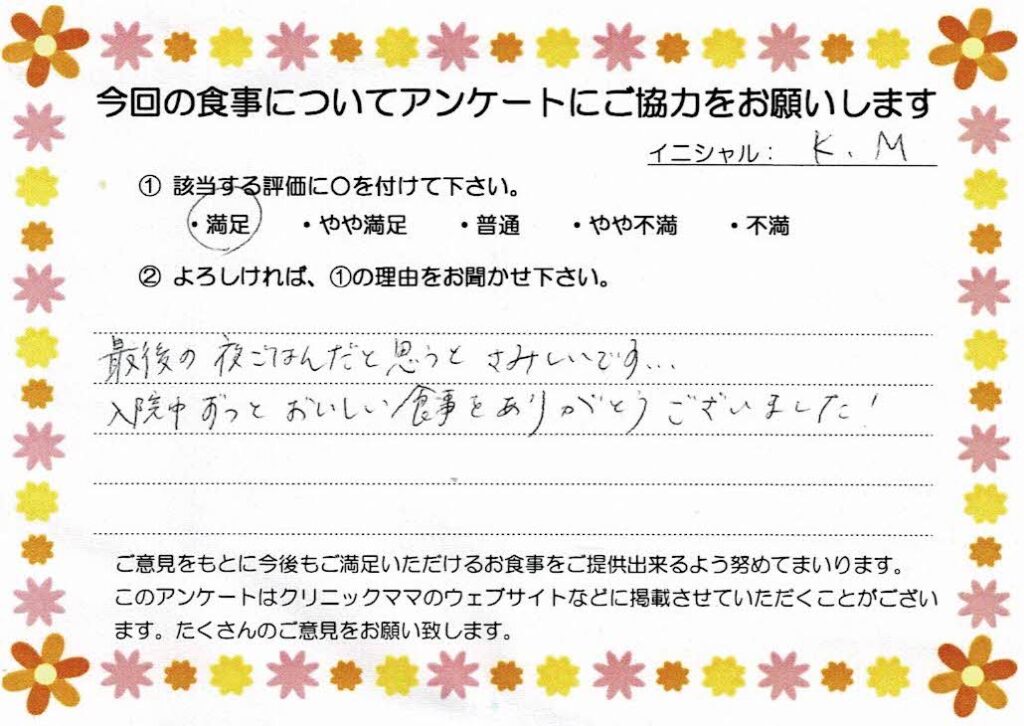 今回の食事についてアンケートにご協力をお願いします
イニシャル： K、M
① 該当する評価に〇を付けて下さい。
・満足 ・やや満足 ・普通 ・やや不満 ・不満
② よろしければ、①の理由をお聞かせ下さい。
最後の夜ごはんだと思うと さみしいです...
入院中ずっと おいしい食事をありがとうございました！
ご意見をもとに今後もご満足いただけるお食事をご提供出来るよう努めてまいります。
このアンケートはクリニックママのウェブサイトなどに掲載させていただくことがござい
ます。たくさんのご意見をお願い致します。